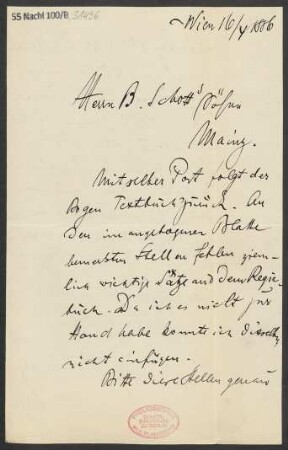 55 Nachl 100/B
Wien 16/V 1886
Herrn B. Schott's Söhne
Mainz.
Mit selber Post folgt der
Bogen Textbuch zurück. An
den im angebogenen Blatte
bemerkten Stellen fehlen ziem-
lich wichtige Sätze aus dem Regie-
buch. Da ich es nicht zur
Hand habe konnte ich dieselben
nicht einfügen.
Bitte diese Stellen genau